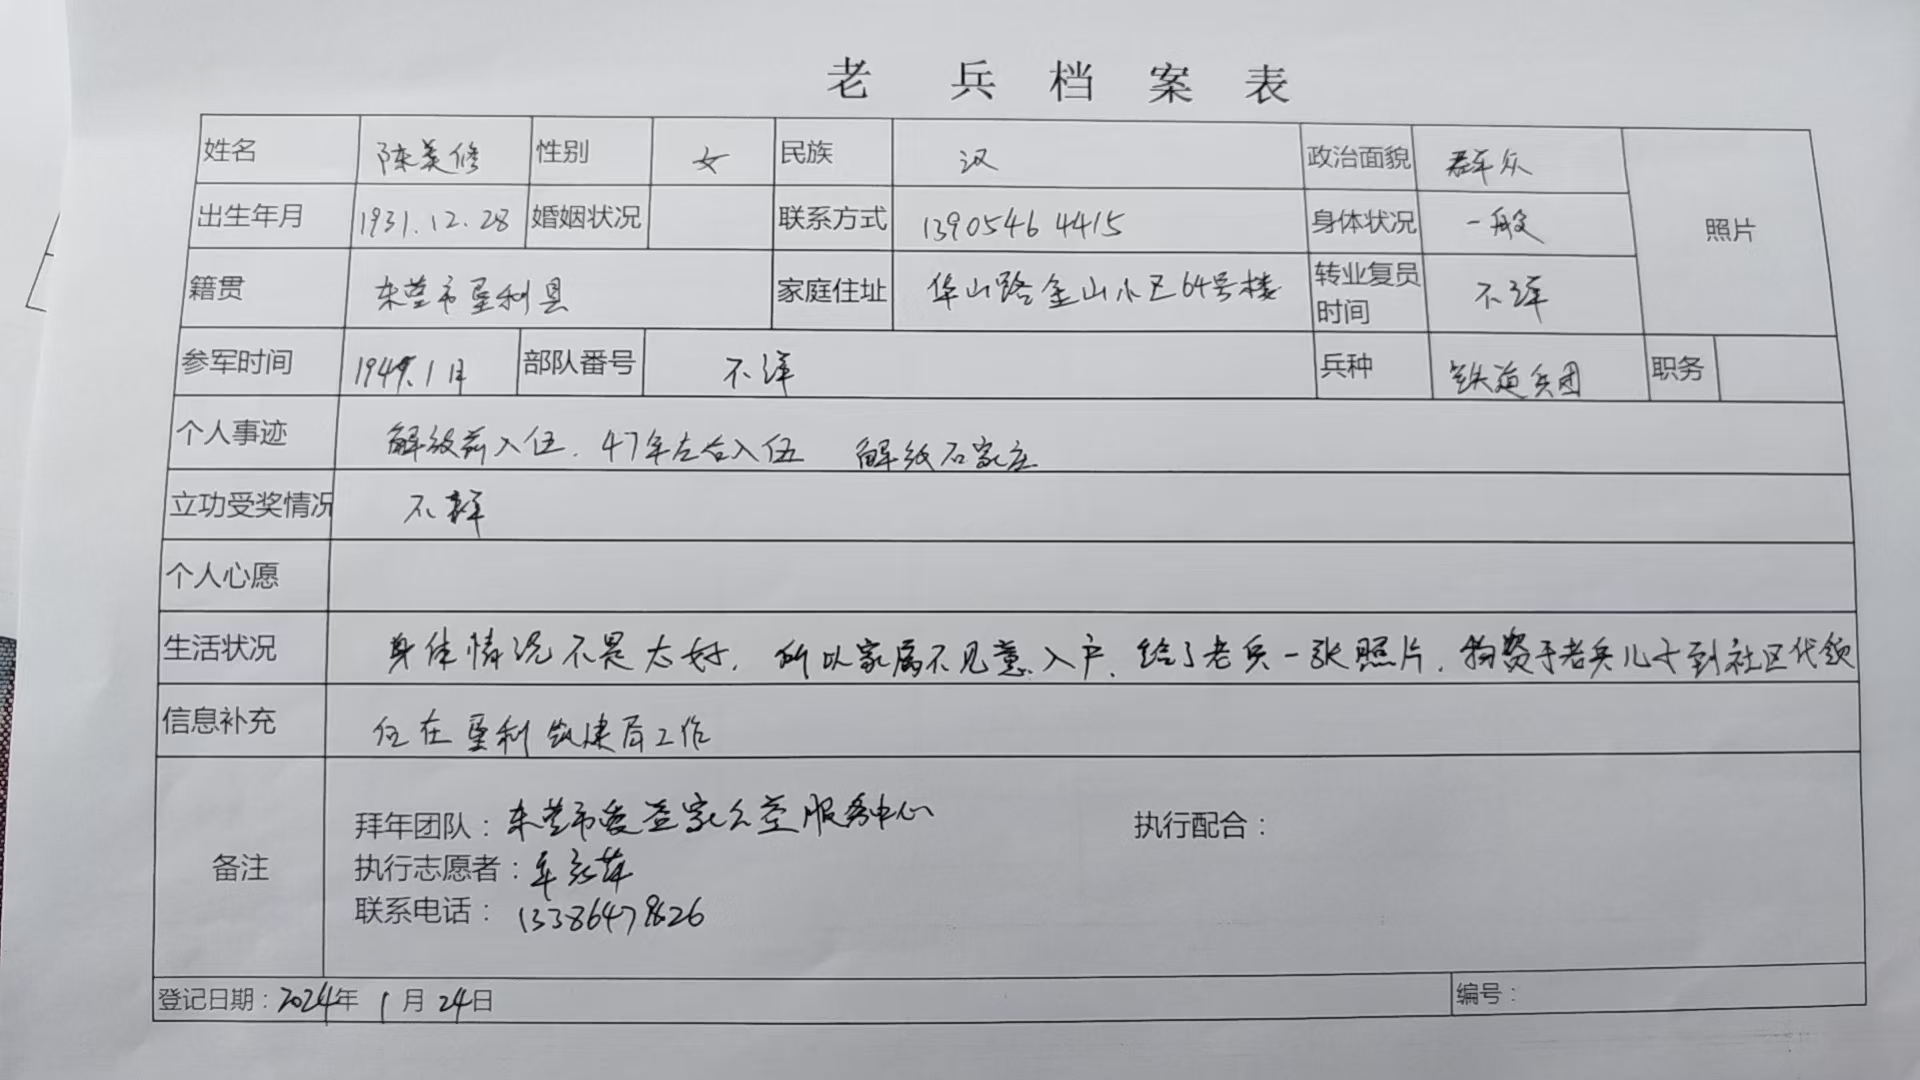 老兵档案表
姓名 陈美修 性别 女 民族 汉 政治面貌 群众 照片
出生年月 1931.12.28 婚姻状况 联系方式 13905464415 身体状况 一般
籍贯 东营市垦利县 家庭住址 华山路金山小区64号楼 转业复员时间 不详
参军时间 1947.1月 部队番号 不详 兵种 铁道兵团 职务
个人事迹 解放前入伍. 47年左右入伍 解放石家庄
立功受奖情况 不详
个人心愿
生活状况 身体情况不是太好, 所以家属不见意入户, 给了老兵一张照片, 物资于老兵儿子到社区代领
信息补充 在垦利 建局工作
备注
拜年团队：东营市爱益家公益服务中心 执行配合：
执行志愿者：
联系电话：13386478626
登记日期：2024年1月24日 编号：